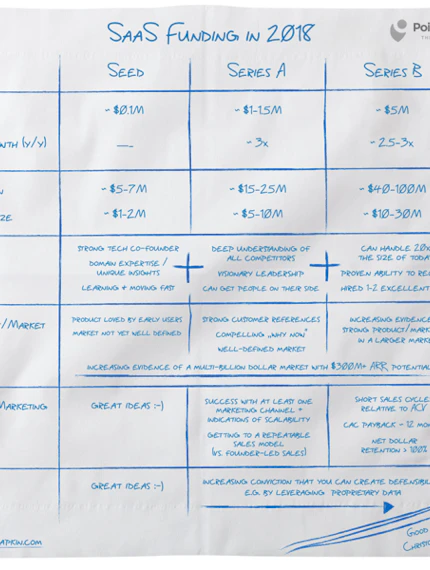 SAAS FUNDING IN 2018
SEED SERIES A SERIES B
~ $0.1M ~ $1-1.5M ~ $5M
(Y/Y) — ~ 3X ~ 2.5-3X
~ $5-7M ~ $15-25M ~ $40-100M
~ $1-2M ~ $5-10M ~ $10-30M
STRONG TECH CO-FOUNDER
DOMAIN EXPERTISE /
UNIQUE INSIGHTS
LEARNING + MOVING FAST
+
DEEP UNDERSTANDING OF
ALL COMPETITORS
VISIONARY LEADERSHIP
CAN GET PEOPLE ON THEIR SIDE
+
CAN HANDLE 20X
THE SIZE OF TODA
PROVEN ABILITY TO RE
HIRED 1-2 EXCELLENT
/MARKET
PRODUCT LOVED BY EARLY USERS
MARKET NOT YET WELL DEFINED
STRONG CUSTOMER REFERENCES
COMPELLING „WHY NOW"
WELL-DEFINED MARKET
INCREASING EVIDENCE
STRONG PRODUCT/MARK
IN A LARGER MARKE
INCREASING EVIDENCE OF A MULTI-BILLION DOLLAR MARKET WITH $300M+ ARR POTENTIA
MARKETING
GREAT IDEAS :-)
SUCCESS WITH AT LEAST ONE
MARKETING CHANNEL +
INDICATIONS OF SCALABILITY
GETTING TO A REPEATABLE
SALES MODEL
(VS. FOUNDER-LED SALES)
SHORT SALES CYCLE
RELATIVE TO ACV
CAC PAYBACK ~ 12 MO
NET DOLLAR
RETENTION > 100%
GREAT IDEAS :-)
INCREASING CONVICTION THAT YOU CAN CREATE DEFENSIB
E.G. BY LEVERAGING PROPRIETARY DATA
APKIN.COM
GOOD
CHRIST